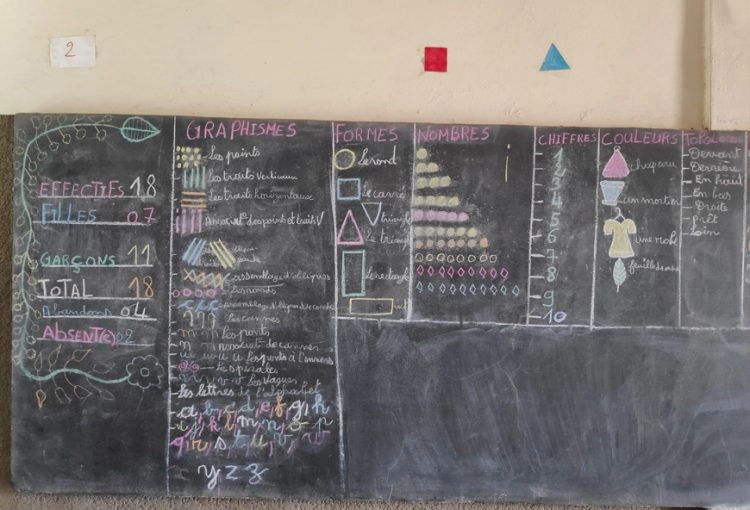 2
EFFECTIFS 18
FILLES 07
GARÇONS 11
TOTAL 18
Abandons 04
ABSENT(e) 02
GRAPHISMES
Les points
les traits verticaux
Les traits horizontaux
des points et traits V
assemblage d'obliques
Les ronds
les cannes
les ponts
les ponts à l'envers
les spirales
les vagues
les lettres de l'alphabet
a, b, c, d, e, f, g, h
i, j, k, l, m, n, o p
q, r, s, t, u, v, w
x y, z z
FORMES
le rond
le carré
triangle
Le triangle
NOMBRES
CHIFFRES
1
2
3
4
5
6
7
8
9
10
COULEURS
chapeau
une robe
Devant
Derrière
En haut
En bas
Droite
Loin